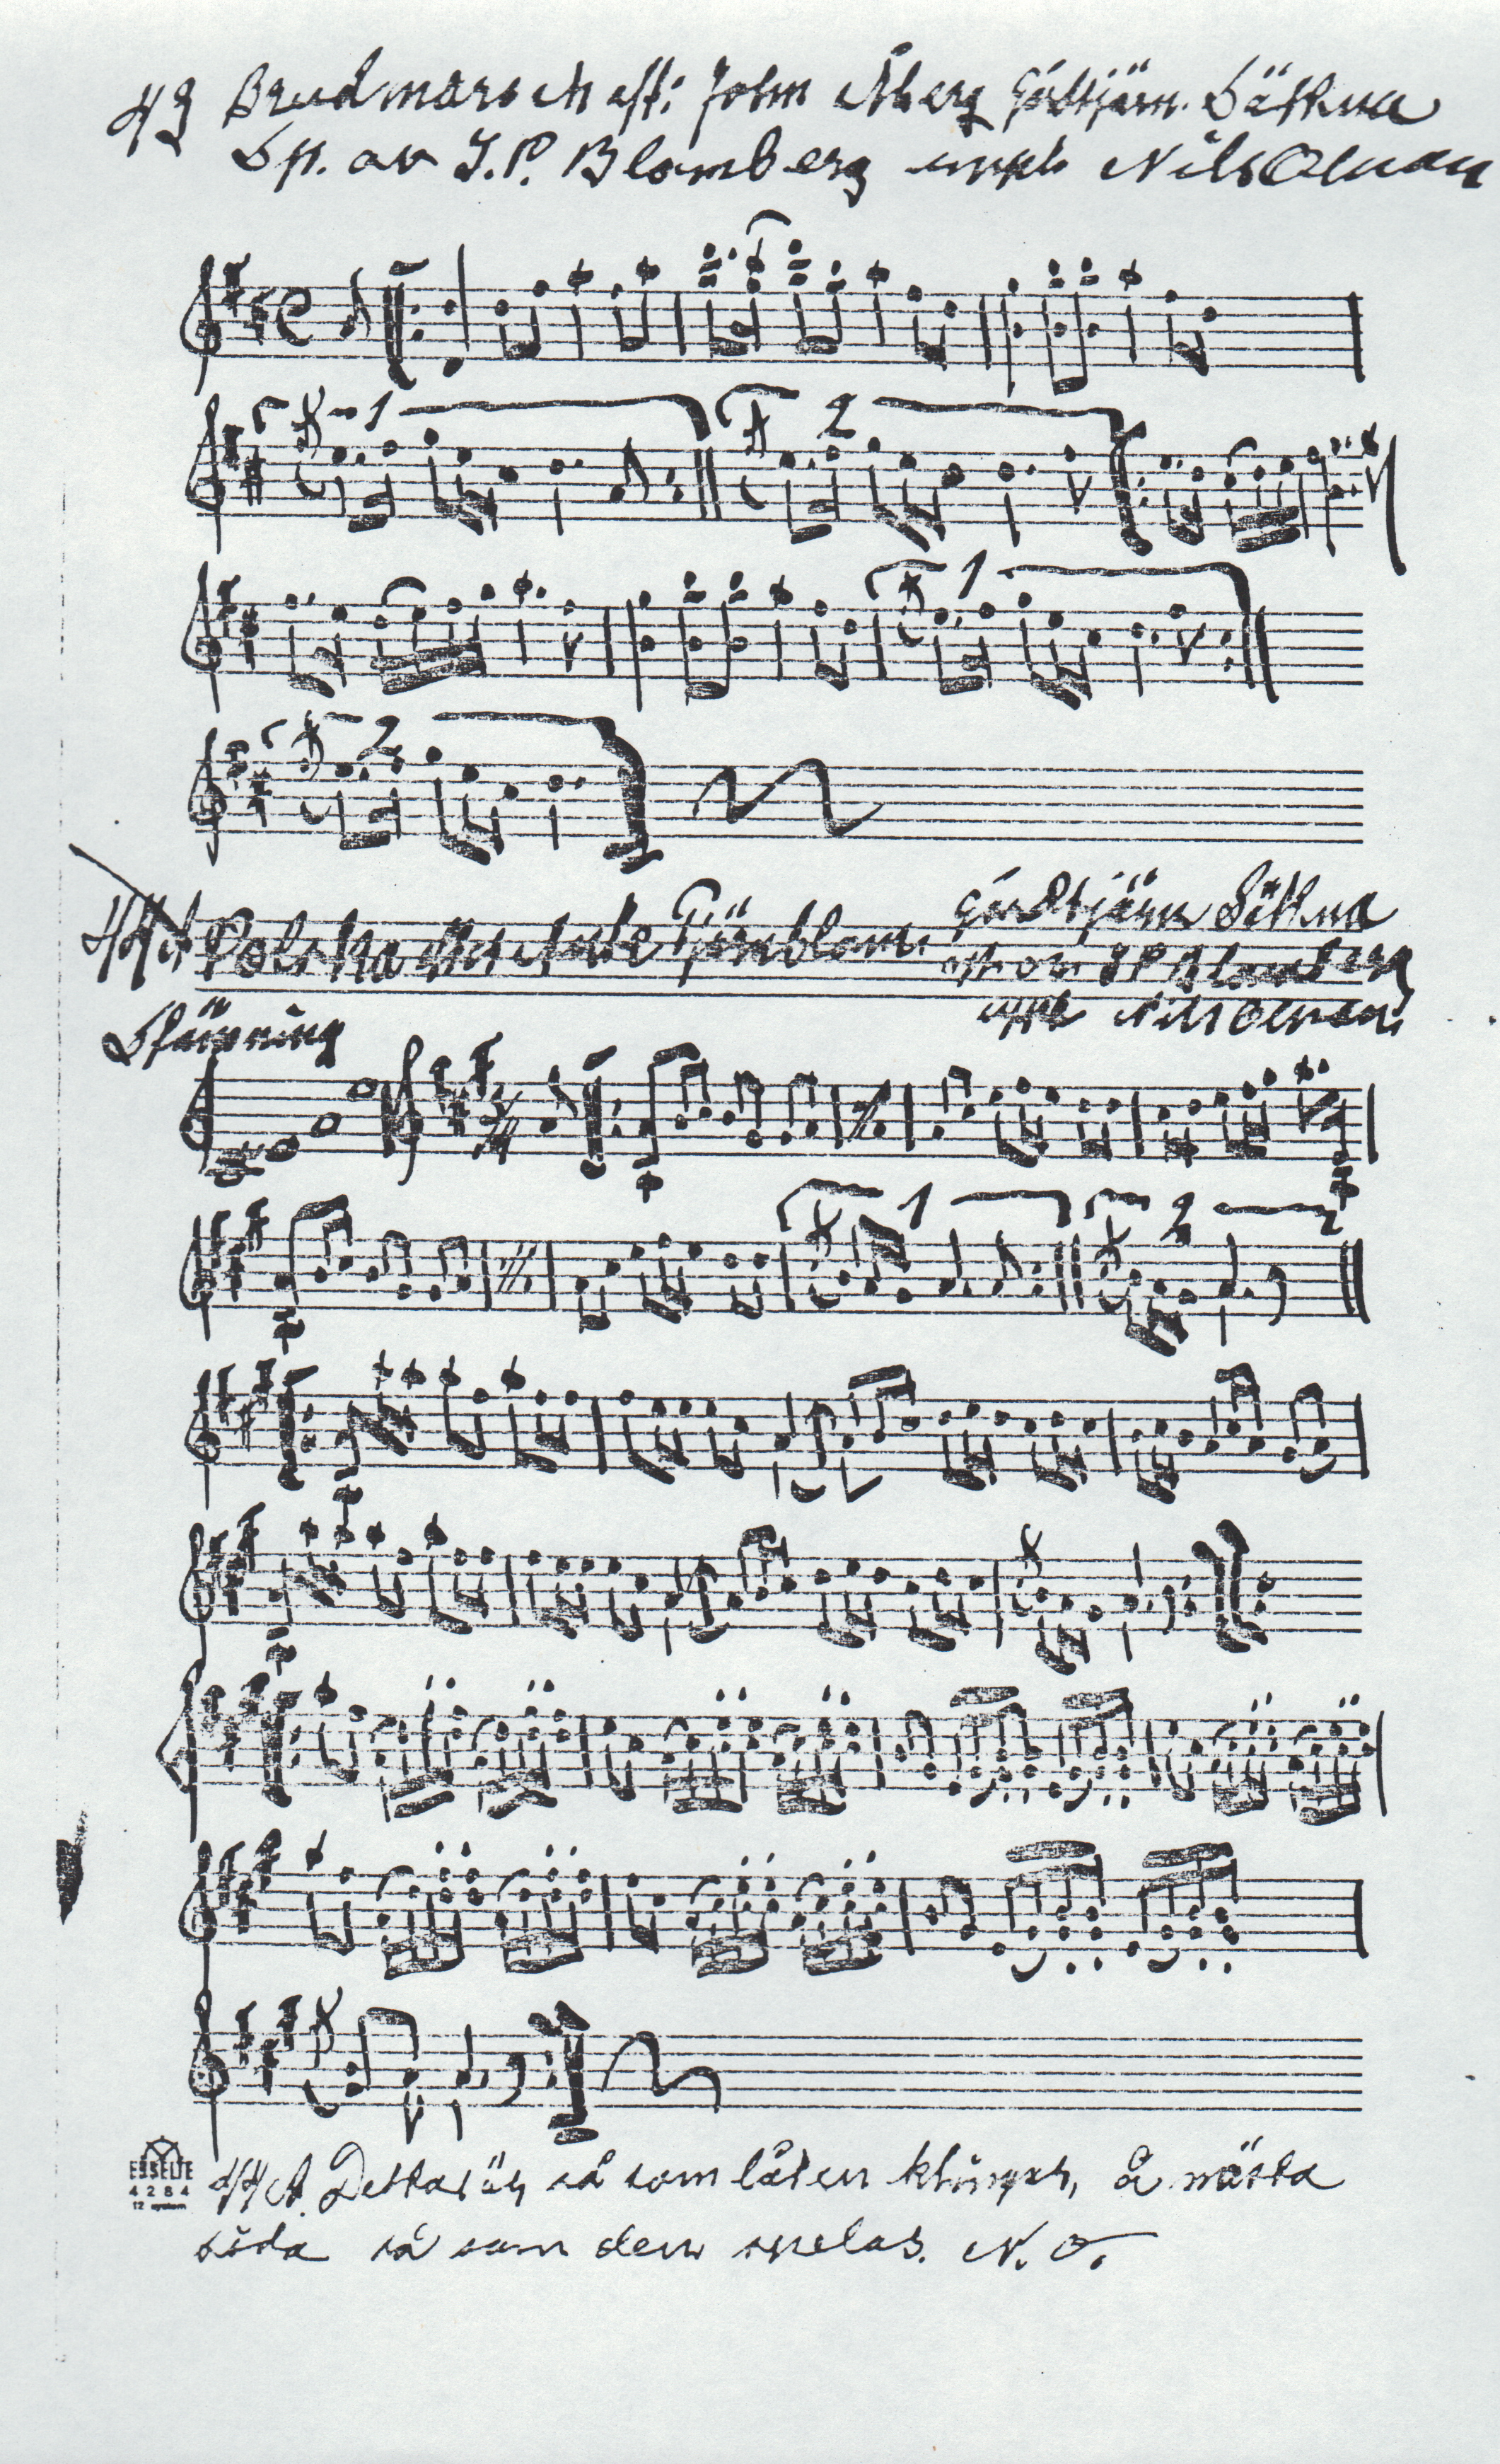 43 Brudmarsch eft: John Åberg Gåltjärn. Sättna
Sp. av J.P. Blomberg uppt. Nils Olsson
1 2
1
2
44A Polska efter Tjärnblom Gåltjärn Sättna
sp. av J P Blomberg
uppt Nils Olsson.
Stämning
3/4
1 2
ESSELTE
4284
12
44A. Detta är så som låten klinger, å nästa
sida så som den spelas. N. O.